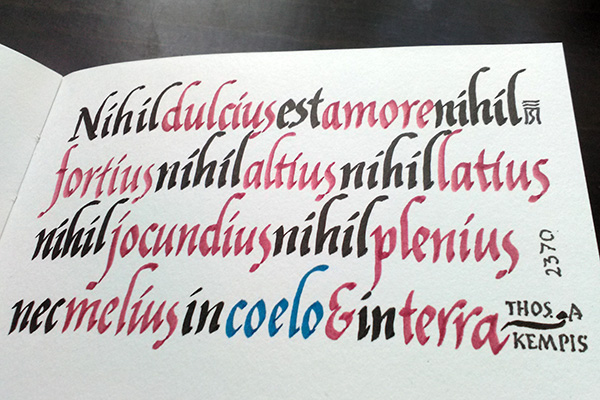 Nihil dulcius est amore nihil
fortius nihil altius nihil latius
nihil jocundius nihil plenius
nec melius in coelo & in terra
THOS. A
KEMPIS
2370